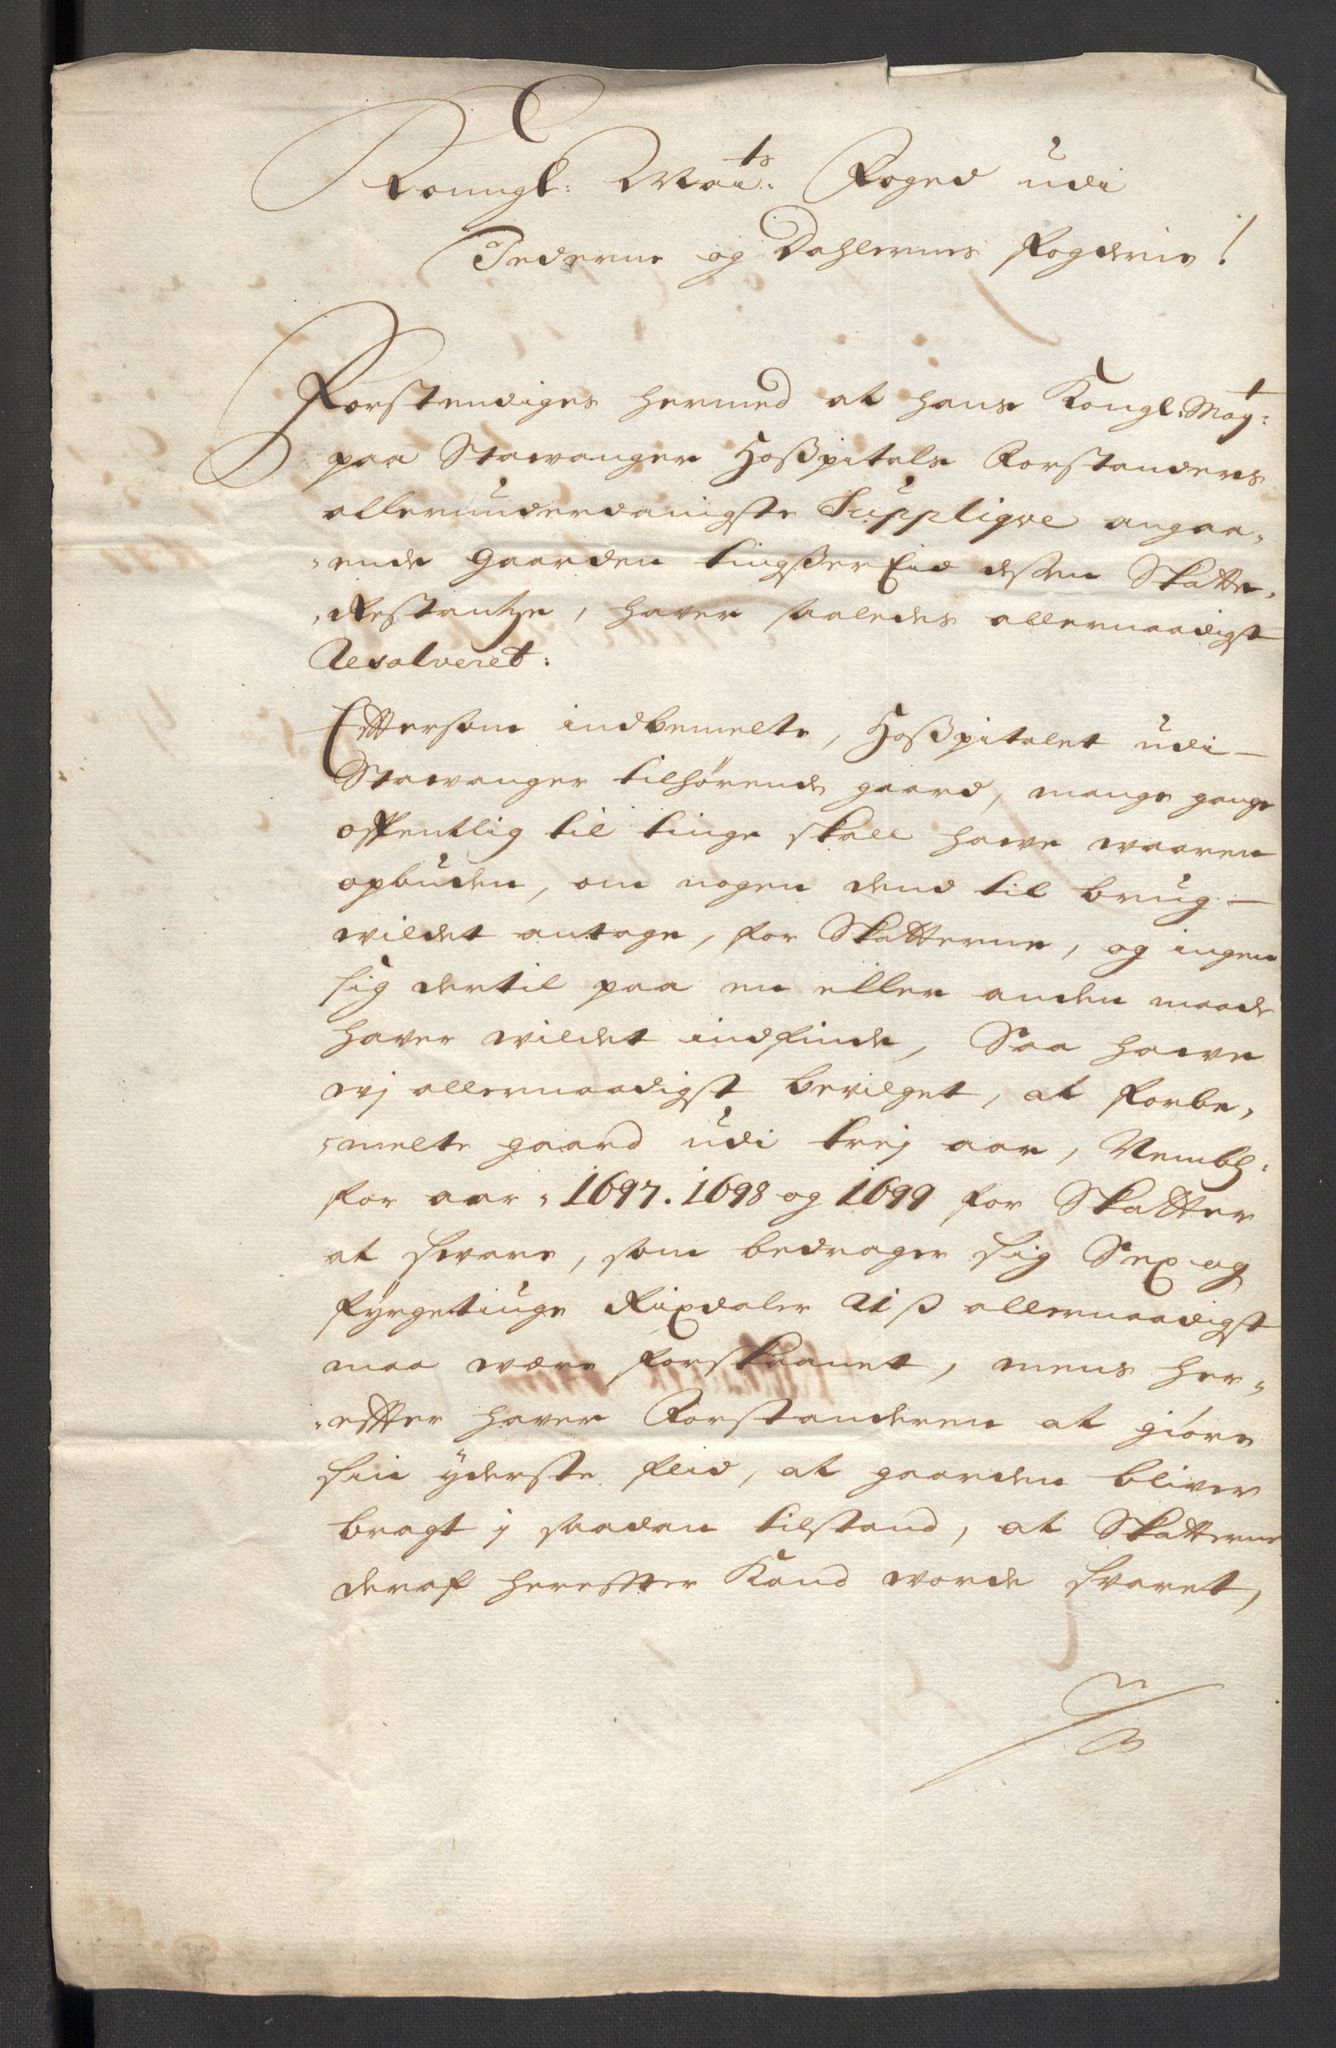 Konngl: Maits: Foged udi
Jederne og Dahlernes fogderie!
Forstendiges hermed at hans Kongl: May:t
paa Stawanger Hoßpitals Forstanders
allerunderdanigste Supplique angaa,
,ende gaarden tingßer Eid dessen Skatte,
,Restantze, haver saaledes allernaadigst
Resolveret:
Effterson indbemelte, Hoßpitalet udi
Stawanger tilhørende gaard, mange gange
offentlig til tinge skall hawe waaren
opbuden, om nogen dend til brug
wildet antage, for Skatterne, og ingen
sig dertil paa en eller anden maade
haver wildet indfinde, Saa hawe
wj allernaadigst bevilget, at forbe,
,melte gaard udi trej aar, Nembl:
for aar, 1697. 1698 og 1699 for Skatter
at sware, som bedrager sig Sex og
fyrgetiuge Rixdaler 21 ß allernaadigst
maa wære forskaanet, mens her,
,effter haver Forstanderen at giøre
sin yderste flid, at gaarden bliver
bragt j saadan tilstand, at Skatterne
deraf hereffter Kand worde svaret,